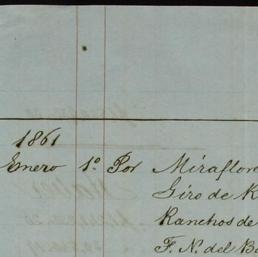 1861
Enero 1º Por Miraflore
Giro de R
Ranchos de
F. N. del Ba